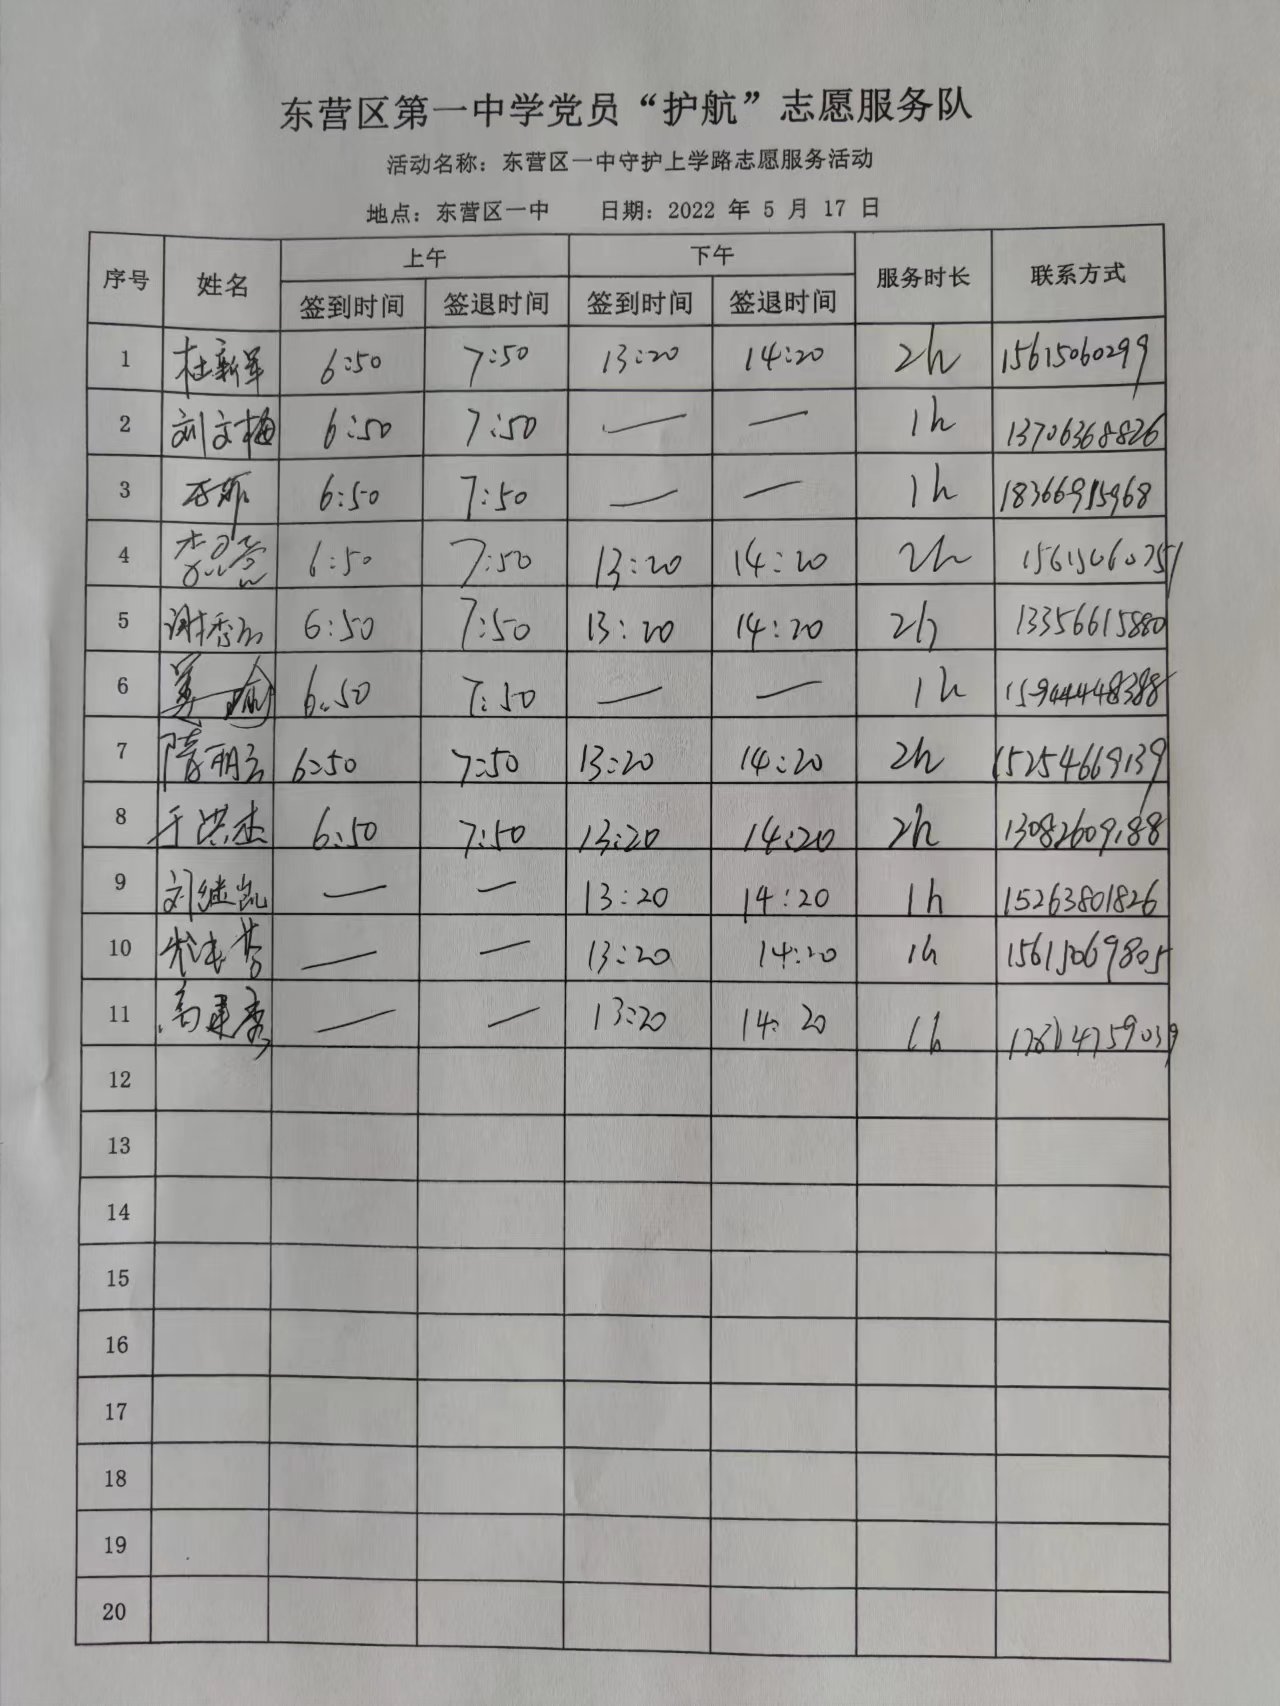 东营区第一中学党员“护航”志愿服务队
活动名称：东营区一中守护上学路志愿服务活动
地点：东营区一中 日期：2022 年 5 月 17 日
序号 姓名 上午 下午 服务时长 联系方式
签到时间 签退时间 签到时间 签退时间
1 杜新军 6:50 7:50 13:20 14:20 2h 15615060299
2 刘文梅 6:50 7:50 — — 1h 13706368826
3 6:50 7:50 — — 1h 18366915968
4 6:50 7:50 13:20 14:20 2h 15615060751
5 谢秀云 6:50 7:50 13:20 14:20 2h 13356615880
6 6:50 7:50 — — 1h
7 隋丽云 6:50 7:50 13:20 14:20 2h 15254669139
8 于洪杰 6:50 7:50 13:20 14:20 2h 13082609188
9 刘继凯 — — 13:20 14:20 1h 15263801826
10 — — 13:20 14:20 1h 15615069805
11 高建秀 — — 13:20 14:20 1h
12
13
14
15
16
17
18
19
20